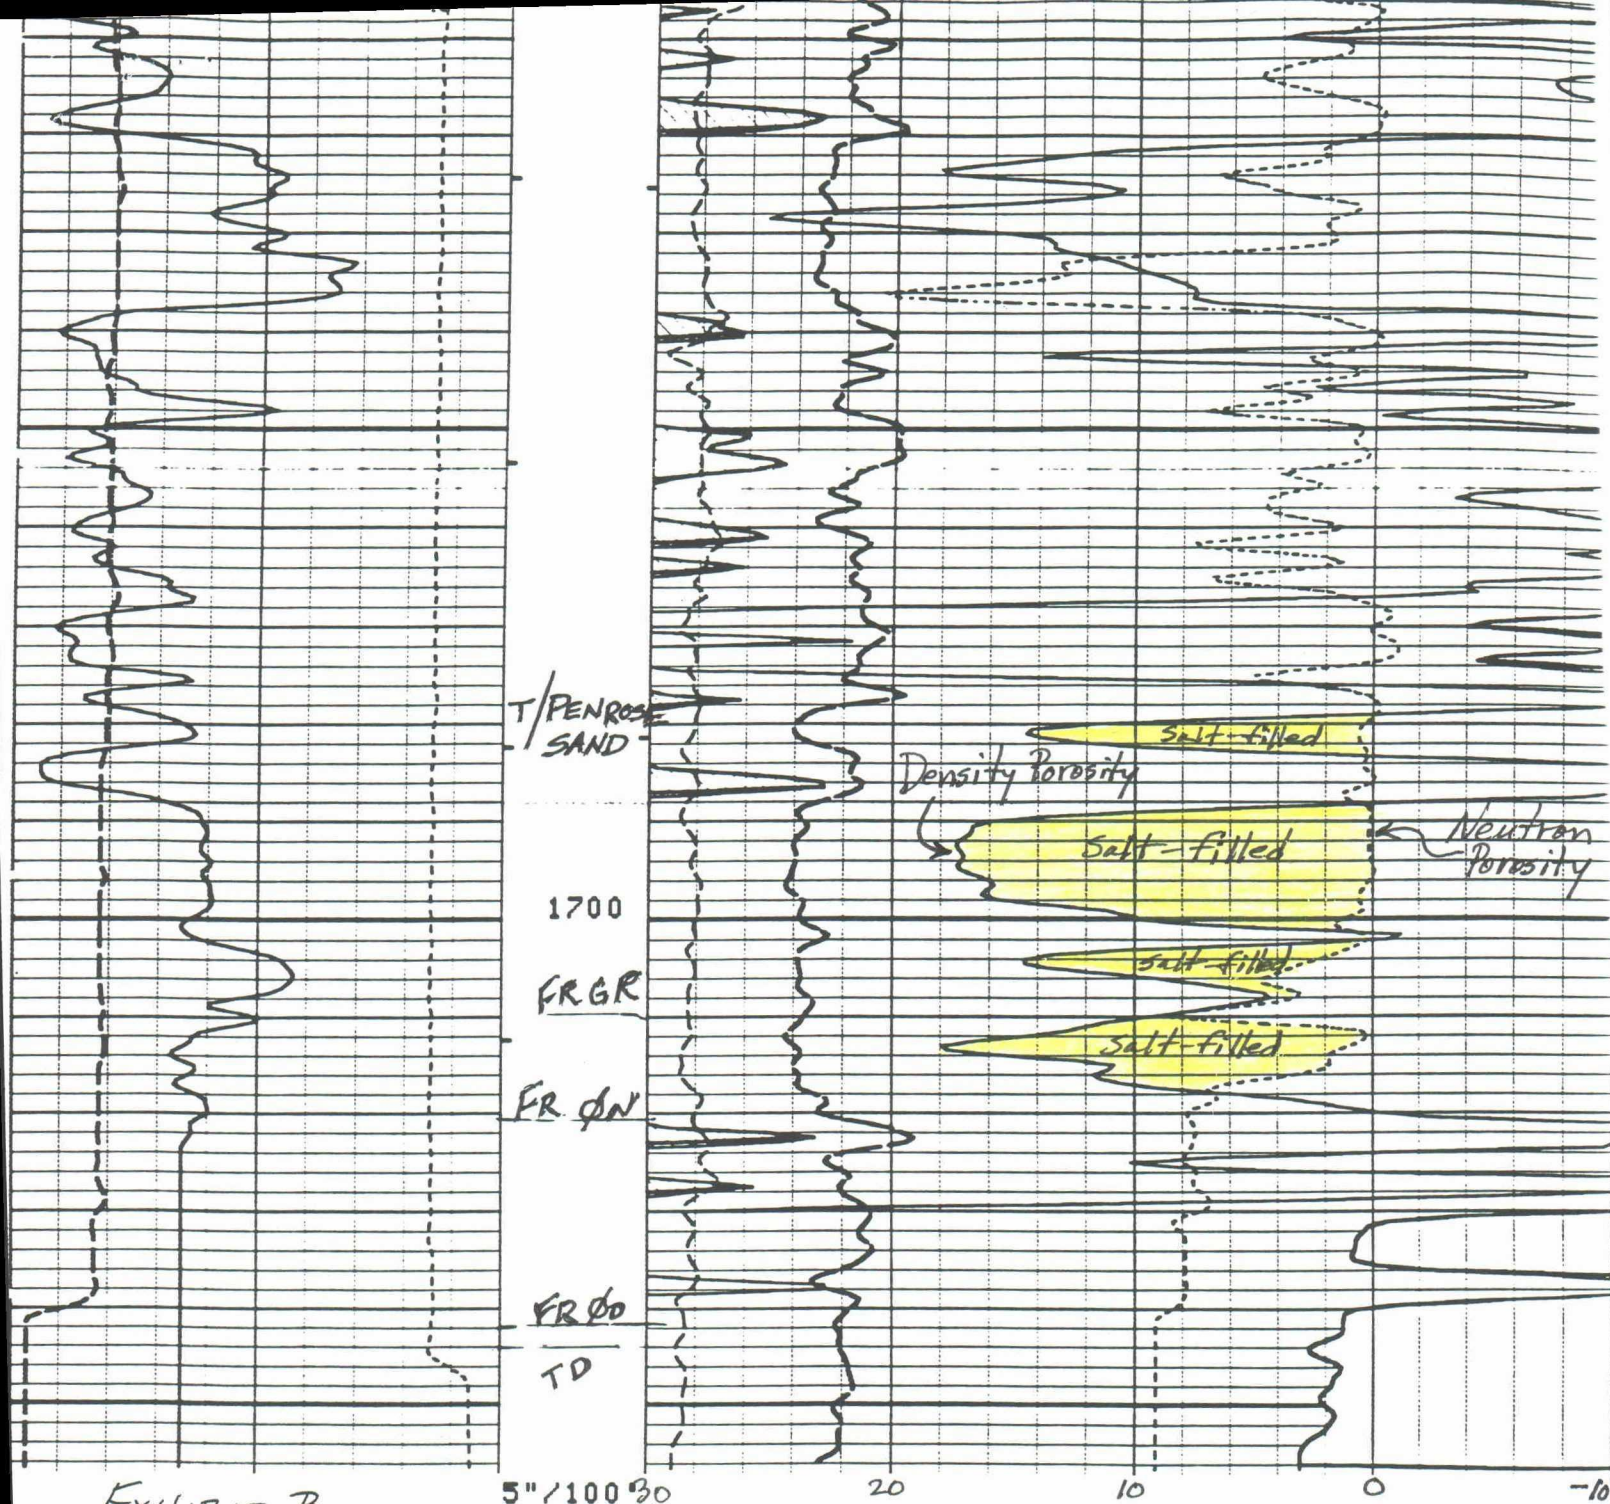 T/PENROSE
SAND
Salt-filled
Density Porosity
Salt-filled
Neutron
Porosity
1700
Salt-filled
FR GR
Salt-filled
FR ØN
FR ØD
TD
5"/100'
30
20
10
0
-10